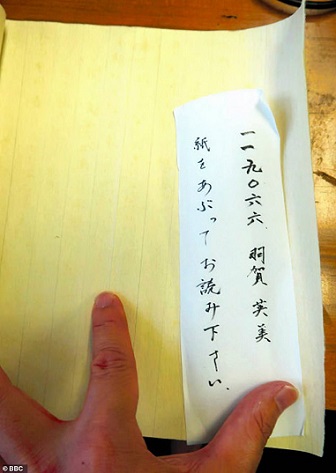 一一九〇六六、羽賀 英美
紙をあぶってお読み下さい、
© BBC